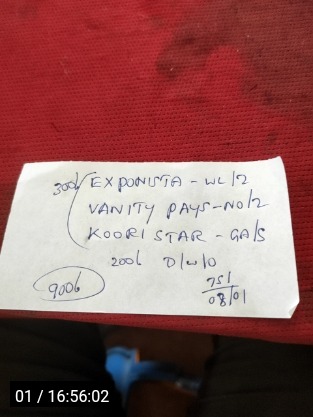 300/- EXPONISTA - WL/2
VANITY PAYS - NO/2
KOORI STAR - GA/S
200/- D/W/O
900/-
751
08/01
01 / 16:56:02